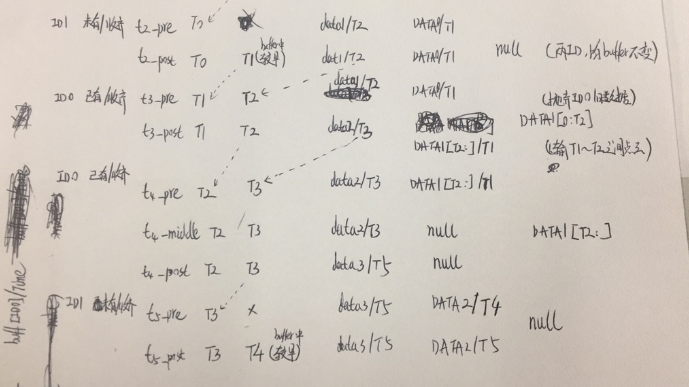 ID1 未有/收齐 t2_pre T0 data1/T2 DATA0/T1
t2_post T0 T1 (buffer中较早) dat1/T2 DATA0/T1 null (两ID,均buffer不变)
ID0 已有/收齐 t3_pre T1 T2 data1/T2 DATA0/T1
t3_post T1 T2 data2/T3 DATA1[0:T2]
DATA1[T2:]/T1 (传输T1~T2之间点云)
ID0 已有/收齐 t4_pre T2 T3 data2/T3 DATA1[T2:]/T1
t4_middle T2 T3 data2/T3 null DATA1[T2:]
t4_post T2 T3 data3/T5 null
ID1 未有/收齐 t5_pre T3 x data3/T5 DATA2/T4
null
t5_post T3 T4 (buffer中较早) data3/T5 DATA2/T5